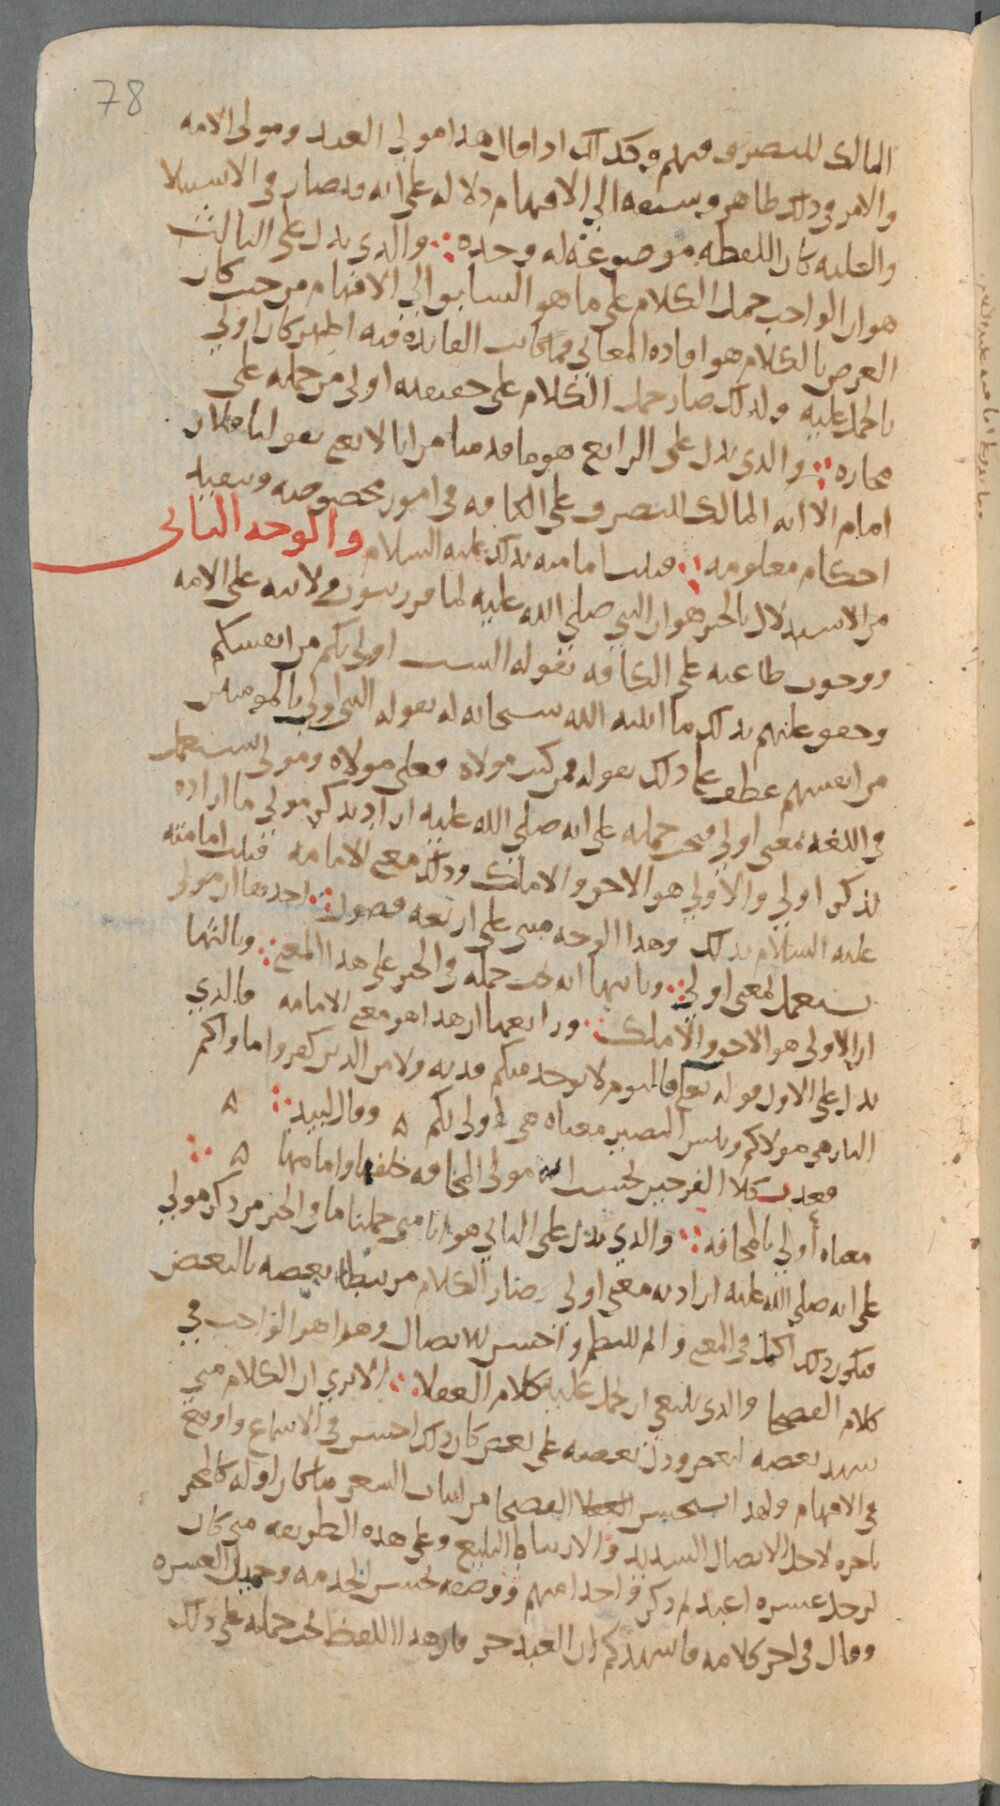 78
المالك للتصرف فيهم وكذلك اذا قال هذا مولى العبد ومولى الامه
والامر في ذلك ظاهر وسبقه الى الافهام دلاله على انه قد صار في الاستيلا
والغلبه كان اللفظه موضوعة له وحده والذي يدل على الثالث
هو ان الواجب حمل الكلام على ما هو السابق الى الافهام من حيث كان
الغرض بالكلام هو افاده المعاني فما كانت الفائدة فيه اظهر كان اولى
بالحمل عليه ولذلك صار حمل الكلام على حقيقته اولى من حمله على
مجازه والذي يدل على الرابع هو ما قدمنا من انا لا نعني بقولنا فلان
امام الا انه المالك للتصرف على الكافه في امور مخصوصه وتنفيذ
احكام معلومه فثبت امامته بذلك عليه السلام والوجه الثاني
من الاستدلال بالخبر هو ان النبي صلى الله عليه لما قرر ثبوت ولايته على الامه
ووجوب طاعته على الكافه بقوله الست اولى بكم من انفسكم
وحقق عليهم بذلك ما اثبته الله سبحانه له بقوله النبي اولى بالمومنين
من انفسهم عطف على ذلك بقوله فمن كنت مولاه فعلي مولاه ومولى تستعمل
في اللغه بمعنى اولى فيجب حمله على انه صلى الله عليه اراد بذكر مولى ما اراده
بذكر اولى والاولى هو الاحق والاملك وذلك معنى الامامه فثبت امامته
عليه السلام بذلك وهذا الوجه مبني على اربعه فصول احدها ان مولى
تستعمل بمعنى اولى وثانيها انه يجب حمله في الخبر على هذا المعنى وثالثها
ان الاولى هو الاحق والاملك ورابعها ان هذا هو معنى الامامه فالذي
يدل على الاول قوله تعلى فاليوم لا يوخذ منكم فديه ولا من الذين كفروا ماواكم
النار هي مولاكم وبئس المصير معناه هي اولى بكم وقال لبيد
فغدت كلا الفرجين تحسب انه مولى المخافه خلفها وامامها
معناه اولى بالمخافه والذي يدل على الثاني هو انا متى حملنا ما في الخبر من ذكر مولى
على انه صلى الله عليه اراد به معنى اولى صار الكلام مرتبطا بعضه بالبعض
فيكون ذلك اكمل في المعنى والم للنظم واحسن للاتصال وهذا هو الواجب في
كلام الفصحا والذي ينبغي ان يحمل عليه كلام العقلا الا ترى ان الكلام متى
شهد بعضه لبعض ودل بعضه على بعض كان ذلك احسن في الاسماع واوقع
في الافهام ولهذا استحسن الفصحا من ابيات الشعر ما كان اوله كالمخبر
باخره لاجل الاتصال السديد والارتباط البليغ وعلى هذه الطريقه متى كان
لرجل عشره اعبد ثم ذكر واحدا منهم ووصفه بحسن الخدمه وجميل العشره
وقال في اخر كلامه فاشهدكم ان العبد حر فان هذا اللفظ يجب حمله على ذلك